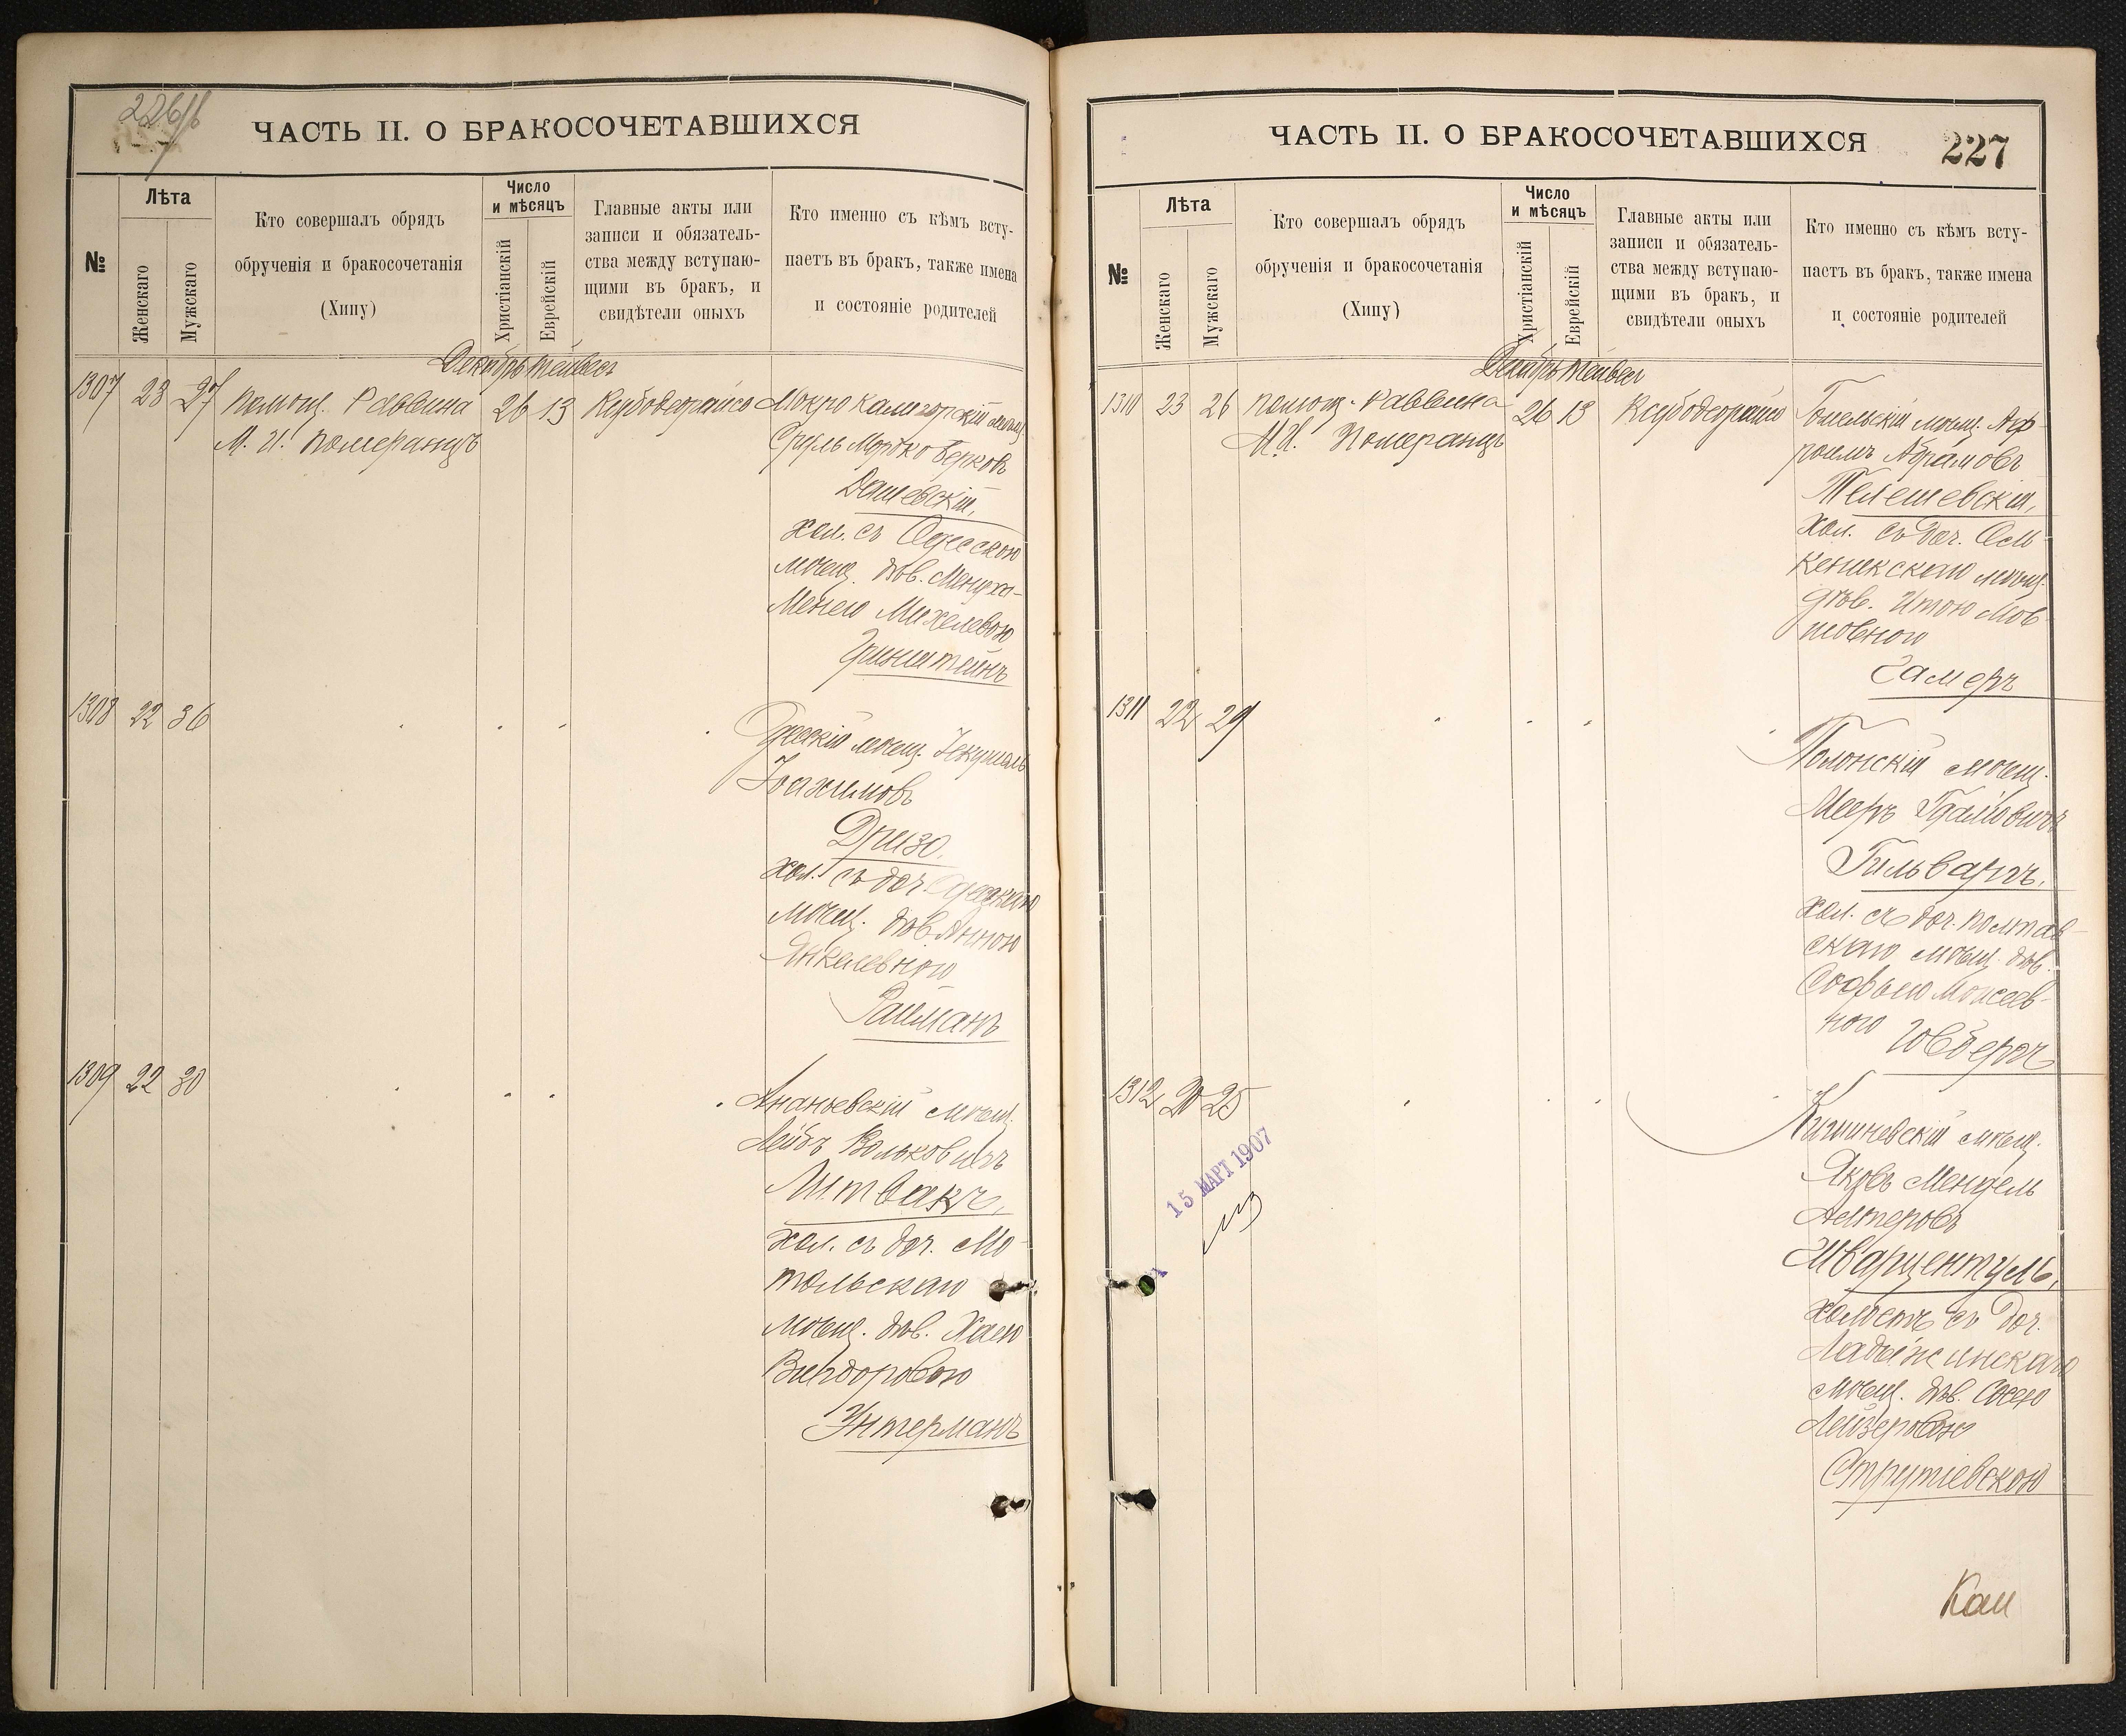 226/b
ЧАСТЬ II. О БРАКОСОЧЕТАВШИХСЯ
№
Лѣта
Женскаго
Мужскаго
Кто совершалъ обрядъ
обрученія и бракосочетанія
(Хипу)
Число
и мѣсяцъ
Христіанскій
Еврейскій
Главные акты или
записи и обязатель-
ства между вступаю-
щими въ бракъ, и
свидѣтели оныхъ
Кто именно съ кѣмъ всту-
паетъ въ бракъ, также имена
и состояніе родителей
Декабрь Тейвесъ
1307 23 27 Помощ. Раввина 26 13 Ксубодеорайсо Мокро Калигорскій мѣщ.
М. И. Померанцъ Сруль Мордко Берковъ
Дашевскій,
хол. съ Одесскою
мѣщ. дѣв. Менухо-
Менею Михелевою
Гринштейнъ
1308 22 36 Одесскій мѣщ. Іекусіель
Іоахимовъ
Дризо.
хол. съ доч. Одесскаго
мѣщ. дѣв. Анною
Янкелевною
Райманъ
1309 22 30 Ананьевскій мѣщ.
Лейбъ Вольковичъ
Литвакъ,
хол. съ доч. Мо-
тольскаго
мѣщ. дѣв. Хаею
Вигдоровою
Унтерманъ
ЧАСТЬ II. О БРАКОСОЧЕТАВШИХСЯ
227
№
Лѣта
Женскаго
Мужскаго
Кто совершалъ обрядъ
обрученія и бракосочетанія
(Хипу)
Число
и мѣсяцъ
Христіанскій
Еврейскій
Главные акты или
записи и обязатель-
ства между вступаю-
щими въ бракъ, и
свидѣтели оныхъ
Кто именно съ кѣмъ всту-
паетъ въ бракъ, также имена
и состояніе родителей
Декабрь Тейвесъ
1310 23 26 Помощ. Раввина 26 13 Ксубодеорайсо Гомельскій мѣщ. Аф-
М. И. Померанцъ роимъ Абрамовъ
Телешевскій,
хол. съ доч. Оль-
кеникскаго мѣщ.
дѣв. Итою Мов-
шовною
Гамеръ
1311 22 29 Полонскій мѣщ.
Мееръ Сраиловичъ
Гильваргъ,
хол. съ доч. Полтав-
скаго мѣщ. дѣв.
Софьею Моисеев-
ною Говбергъ
1312 20 25 Кишиневскій мѣщ.
Яковъ Мендель
Алтеровъ
Шварцентуль,
холостъ съ доч.
Ладыжинскаго
мѣщ. дѣв. Сосею
Лейзеровою
Струтіевскою
15 МАРТ 1907